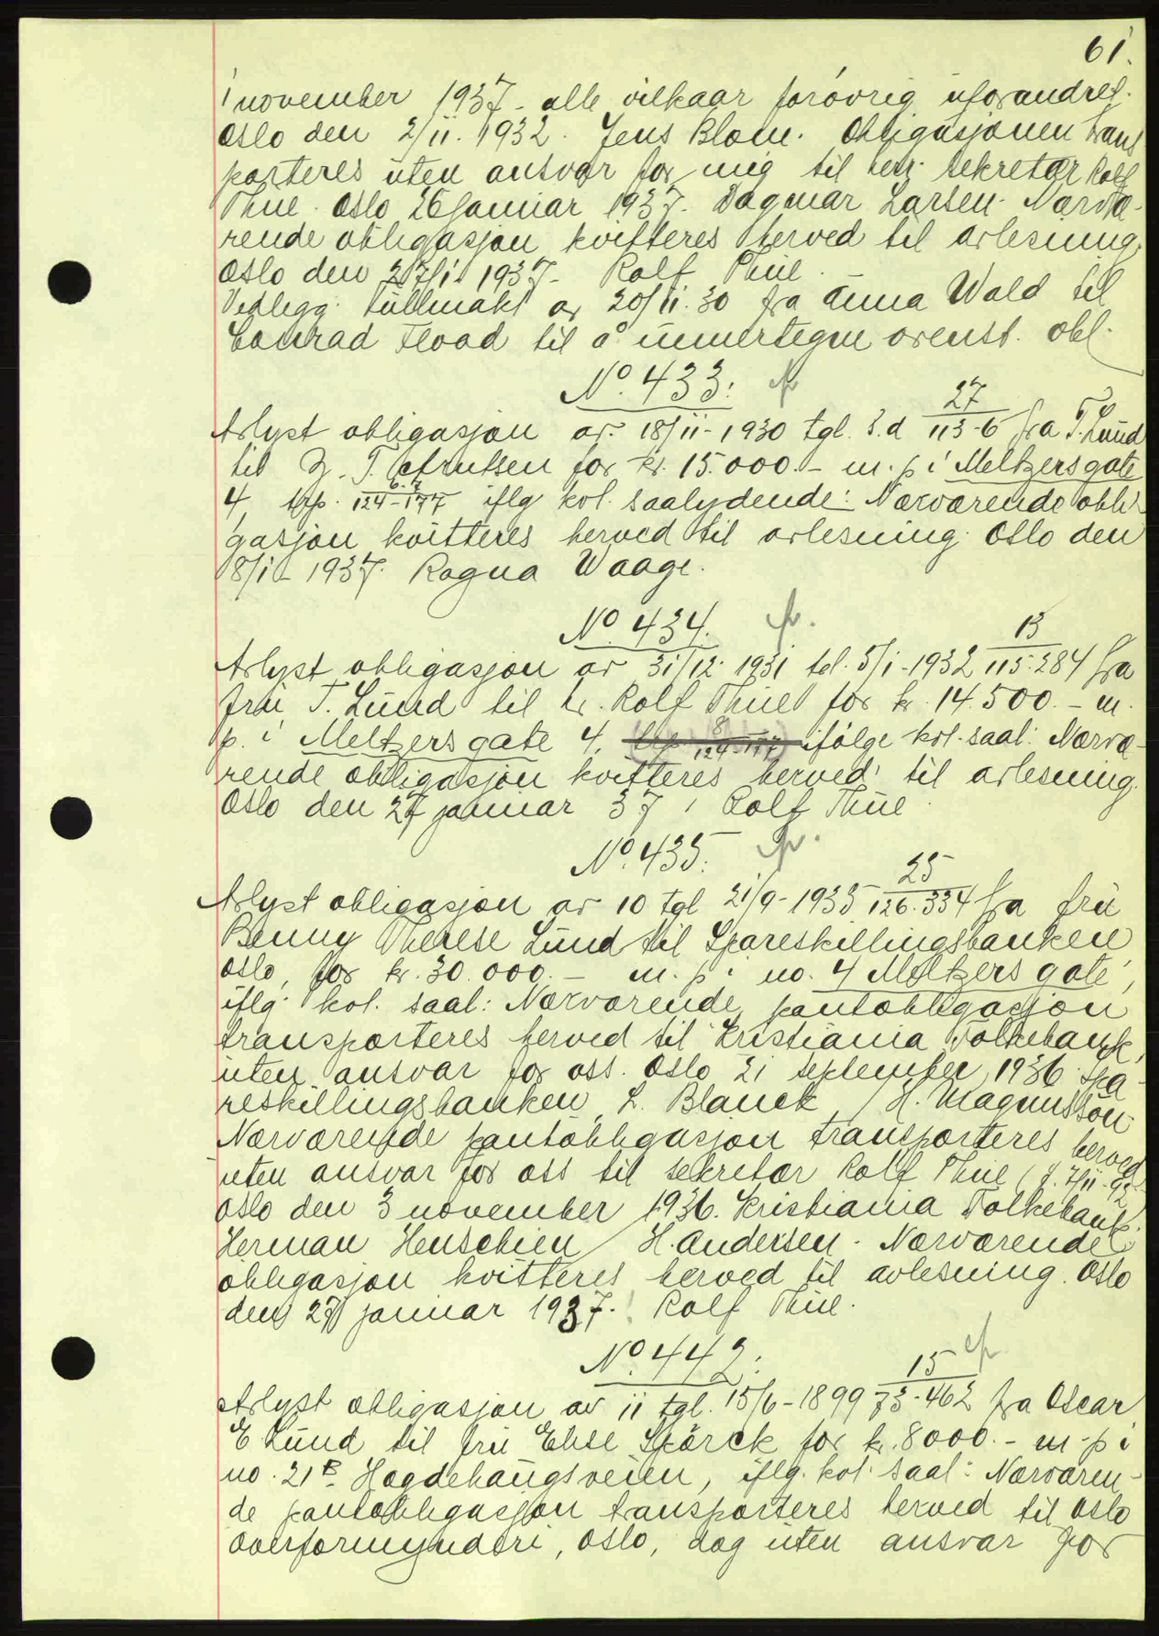 61.
1 november 1937 - alle vilkaar forövrig uforandret.
Oslo den 2/11. 1932. Jens Blom. Obligasjonen trans
porteres uten ansvar for mig til herr sekretær Rolf
Thue. Oslo 26 januar 1937. Dagmar Larsen. Nærvæ-
rende obligasjon kvitteres herved til avlesning
Oslo den 27/1 1937- Rolf Thue.
Vedlegg: fullmakt av 20/11.30 fra Anna Wald til
Conrad Flood til å unnertegne ovenst. obl.
No. 433:
Avlyst obligasjon av 18/11-1930 tgl. s.d 27/113-6 fra T. Lund
til for kr. 15.000.- m. p i Meltzersgate
4, iflg kvl. saalydende: Nærværende obli-
gasjon kvitteres herved til avlesning. Oslo den
18/1-1937. Ragna Waage.
No. 434.
Avlyst obligasjon av 31/12-1931 tgl. 5/1-1932 13/115-284 fra
fru T. Lund til hr. Rolf Thue for kr. 14.500.- m.
p. i Meltzersgate 4, ifölge kvl. saal: Nærvæ-
rende obligasjon kvitteres herved til avlesning.
Oslo den 27 januar 37, Rolf Thue.
No. 435.
Avlyst obligasjon av 10 tgl 21/9-1935 25/126.334 fra fru
Benny Therese Lund til Spareskillingsbanken
Oslo, for kr. 30.000.- m. p i no. 4 Meltzersgate,
iflg. kvl. saal: Nærværende pantobligasjon
transporteres herved til Kristiania Folkebank,
uten ansvar for oss. Oslo 21 september 1936 Spa-
reskillingsbanken L. Blanck / H. Magnusson.
Nærværende pantobligasjon transporteres herved
uten ansvar for oss til sekretær Rolf Thue
Oslo den 3 november 1936. Kristiania Folkebank.
Herman Henschien / H. Andersen. Nærværende
obligasjon kvitteres herved til avlesning. Oslo
den 27 januar 1937. Rolf Thue.
No. 442:
Avlyst obligasjon av 11 tgl. 15/6-1899 15/73-462 fra Oscar
E Lund til fru Elise Spörck for kr. 8000.- m-p i
no. 21B Hægdehaugsveien, iflg. kvl saal: Nærværen-
de pantobligasjon transporteres herved til Oslo
overformynderi, Oslo, dog uten ansvar for